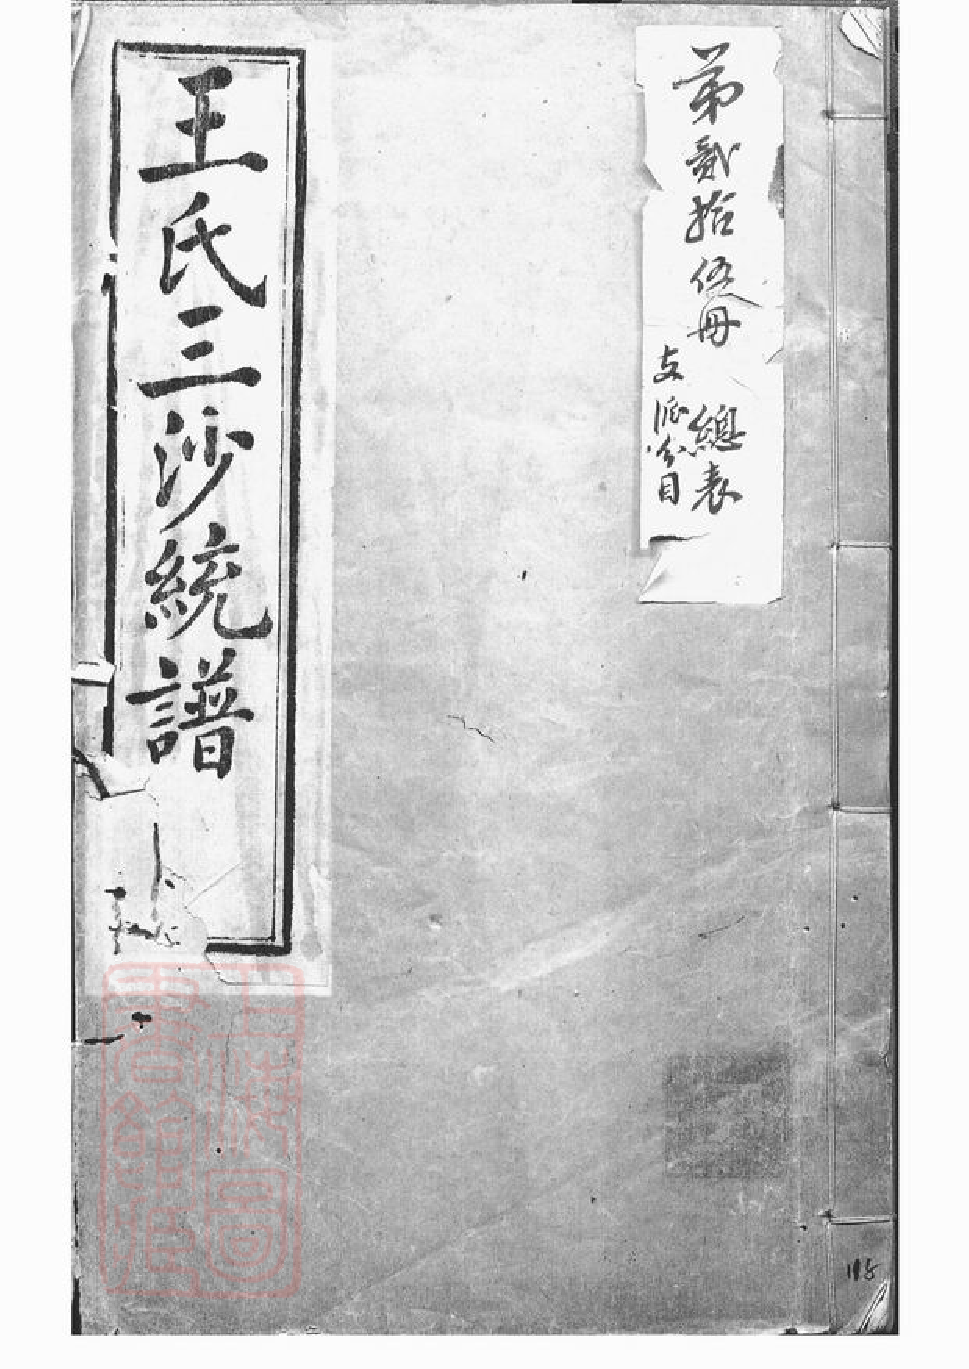 第貳拾伍冊
總表
支派分目
王氏三沙統譜
上海圖書館藏
118